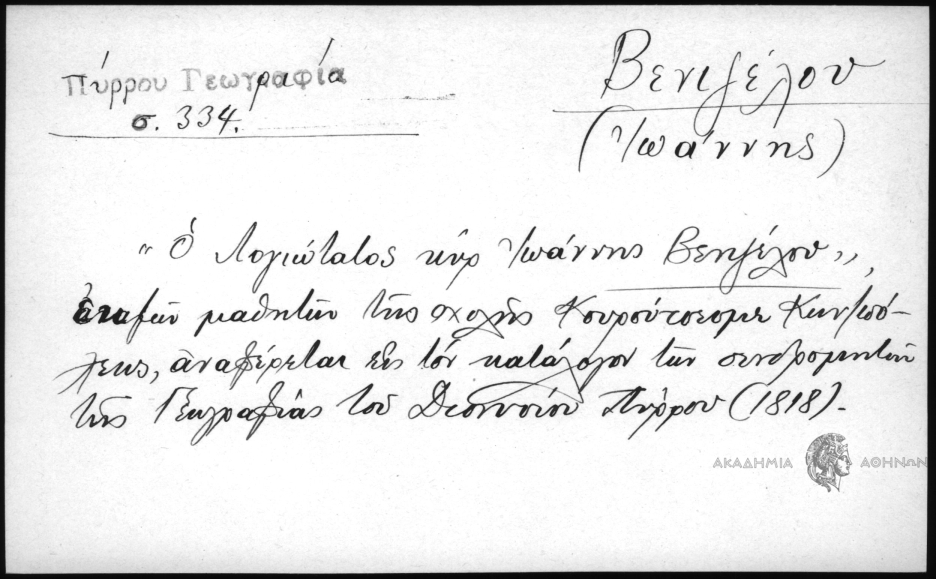 Πύρρου Γεωγραφία
σ. 334.
Βενιζέλου
(Ἰωάννης)
"Ὁ λογιώτατος κὺρ Ἰωάννης Βενιζέλου",
μεταξὺ τῶν μαθητῶν τῆς σχολῆς Κουρούτσεσμε Κων/πό-
λεως, ἀναφέρεται εἰς τὸν κατάλογον τῶν συνδρομητῶν
τῆς Γεωγραφίας τοῦ Διονυσίου Πύρρου (1818).
ΑΚΑΔΗΜΙΑ ΑΘΗΝΩΝ